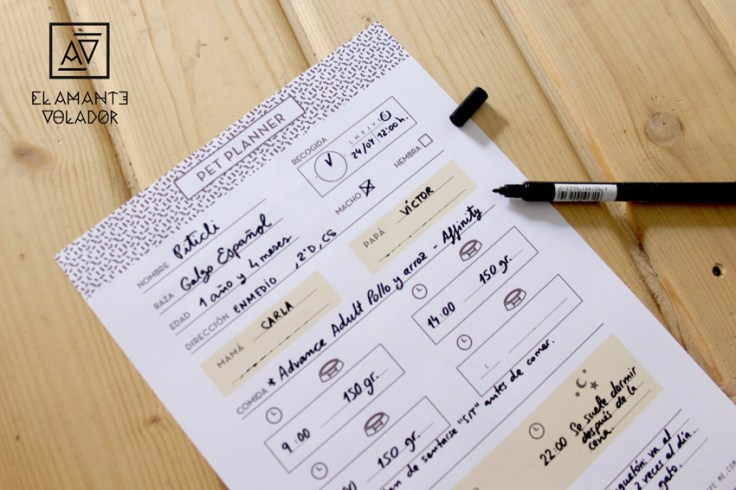 EL AMANTE
VOLADOR
PET PLANNER
RECOGIDA
L M X J V
24/04 12:00 h.
NOMBRE Piticli
MACHO HEMBRA
RAZA Galgo Español
EDAD 1 año y 4 meses
DIRECCIÓN ENMEDIO , 2ºD, CS
MAMÁ CARLA
PAPÁ VÍCTOR
COMIDA * Advance Adult Pollo y arroz - Affinity
9:00 150 gr.
14:00 150 gr.
150 gr.
de sentarse "SIT" antes de comer.
22:00 Se suele dormir
después de la
cena.
va al
2 veces al día.
gato.